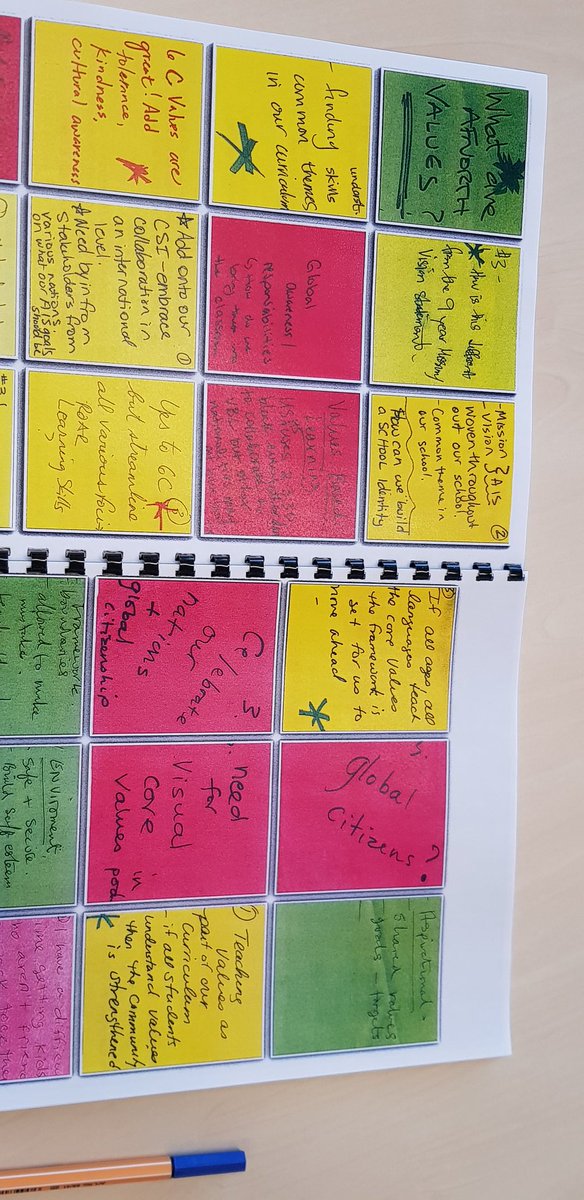 What are
AISNORTH
VALUES?
#3 -
How is this different
from the 9 year Mission/
Vision statement.
- Mission
- Vision } AIS ②
woven throughout
out our school.
- Common theme in
our school.
How can we build
a SCHOOL IDENTITY
- finding skills
underst-
common themes
in our curriculum
Global
awareness/
responsibilities
↳ How do we
bring them into
the classroom
Values Based
Learning
6 C Values are
great! Add
tolerance,
kindness,
cultural awareness
* Add onto our ①
CSI - embrace
collaboration in
an international
level.
* Need by in from
stakeholders from
various nations
on what our AIS goals
should be
Yes to 6C ②
but streamline
all various foci -
ROAR
Learning skills
#3
If all ages, all
languages teach
the core values
the framework is
set for us to
move ahead
-
global
citizens?
Aspirational -
shared values
goals - targets
3
Celebrate
our
nat'ns
+
global
citizenship
need
for
Visual
Core in
values pod
① Teaching
values as
part of our
curriculum
- if all students
understand values
then the community
is strengthened
Framework
Boundaries
allowed to make
mistake.
Environment,
safe + secure
Build self esteem
I have a diffic
time getting kids
who aren't friend